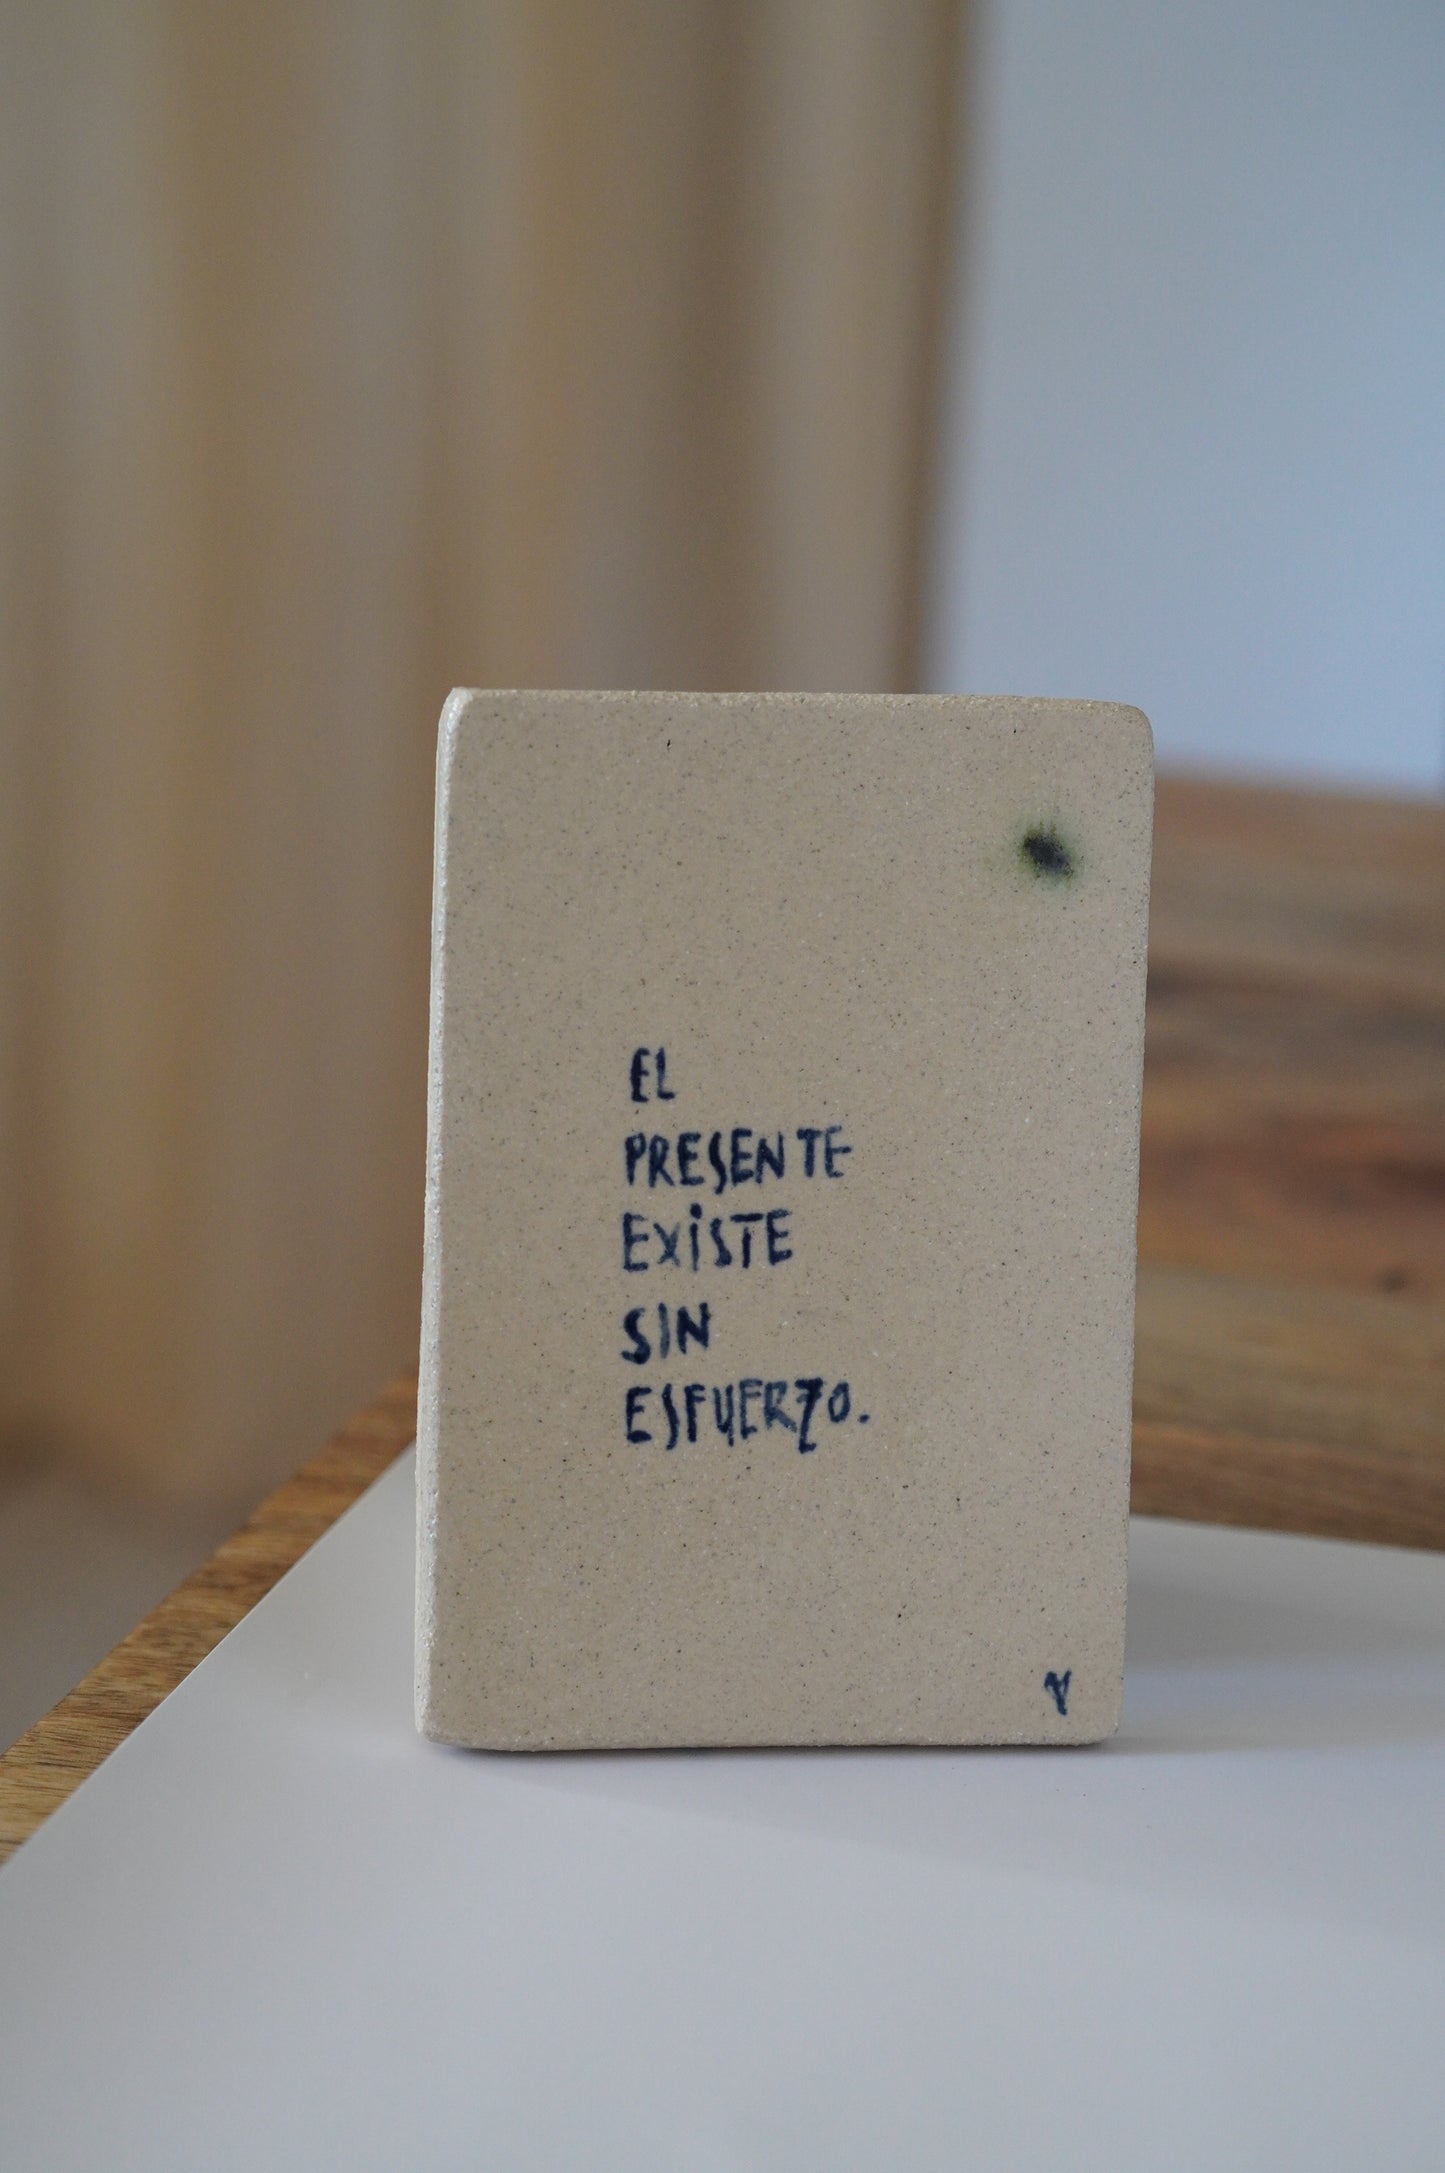 EL
PRESENTE
EXiSTE
SIN
ESFUERZO.